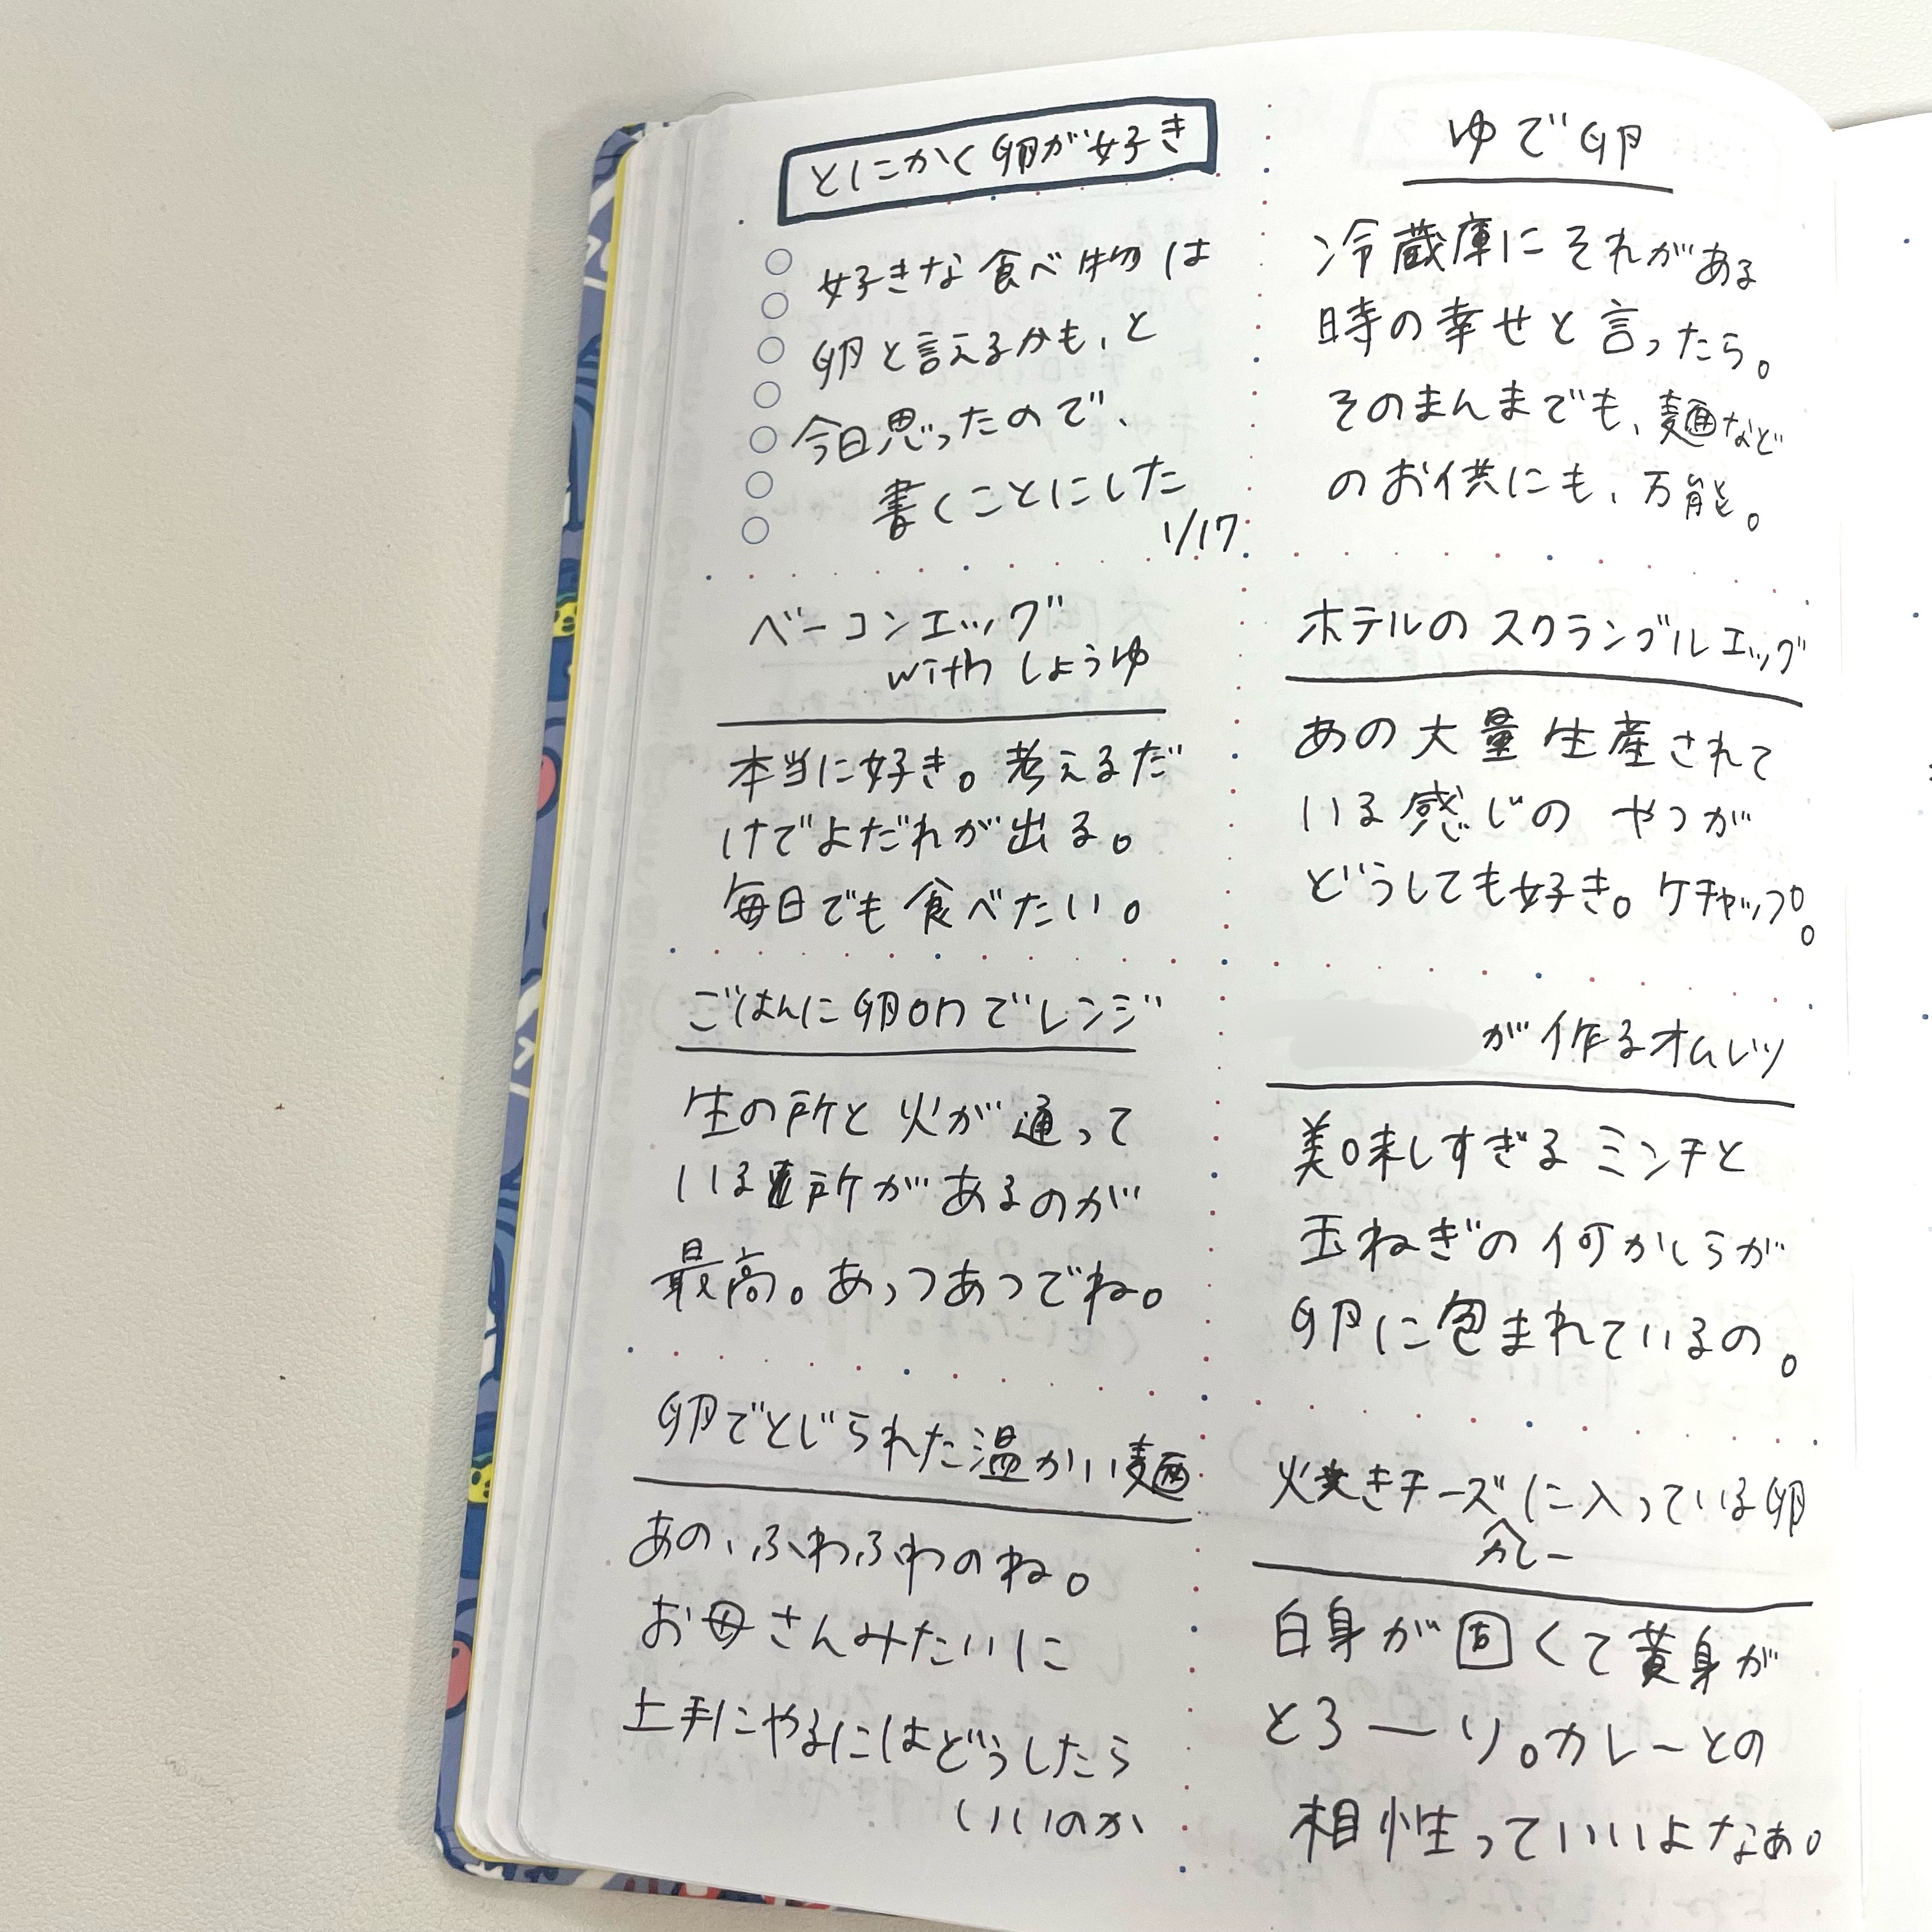 とにかく卵が好き
好きな食べ物は
卵と言えるかも、と
今日思ったので、
書くことにした
1/17
ベーコンエッグ
with しょうゆ
本当に好き。考えるだ
けでよだれが出る。
毎日でも食べたい。
ごはんに卵onでレンジ
生の所と火が通って
いる所があるのが
最高。あっつあつでね。
卵でとじられた温かい麺
あの、ふわふわのね。
お母さんみたいに
上手にやるにはどうしたら
いいのか
ゆで卵
冷蔵庫にそれがある
時の幸せと言ったら。
そのまんまでも、麺など
のお供にも、万能。
ホテルのスクランブルエッグ
あの大量生産されて
いる感じのやつが
どうしても好き。ケチャップ。
が作るオムレツ
美味しすぎるミンチと
玉ねぎの何かしらが
卵に包まれているの。
焼きチーズに入っている卵
カレー
白身が固くて黄身が
とろーり。カレーとの
相性っていいよなぁ。